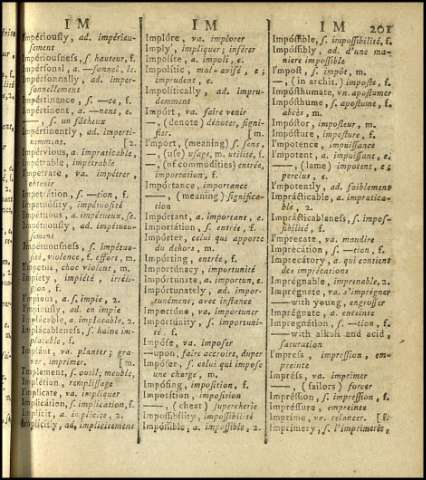 IM
Impériously, ad. impérieu-
sement
Impériousness, s. hauteur, f.
Impérsonal, a. —sonnel, le.
Impérsonally, ad. imper-
sonnellement
Impértinence, s. —ce, f.
Impértinent, a. —nent, e.
—, s. un fâcheux
Impértinently, ad. imperti-
nemment. [2.
Impérvious, a. impraticable,
Impétrable, impétrable
Impetrate, va. impétrer,
obtenir
Impetrátion, s. —tion, f.
Impetuósity, impétuosité
Impétuous, a. impétueux, se.
Impétuously, ad. impétueu-
sement
Impétuousness, s. impétuo-
sité, violence, f. effort, m.
Ímpetus, choc violent, m.
Impíety, impiété, irréli-
gion, f.
Ímpious, a. s. impie, 2.
Ímpiously, ad. en impie
Implácable, a. implacable, 2.
Implácableness, s. haine im-
placable, f.
Implánt, va. planter; gra-
ver, imprimer. [m.
Ímplement, s. outil, meuble,
Implétion, remplissage
Ímplicate, va. impliquer
Implicátion, s. implication, f.
Implícit, a. implicite, 2.
Implícitly, ad, implicitement
IM
Implóre, va. implorer
Implý, impliquer; inférer
Impolíte, a. impoli, e.
Impolític, mal-avisé, e;
imprudent, e.
Impolítically, ad. impru-
demment
Impórt, va. faire venir
—, (denote) dénoter, signi-
fier. [m.
Ímport, (meaning) s. sens,
—, (use) usage, m. utilité, f.
—, (of commodities) entrée,
importation, f.
Impórtance, importance
—, (meaning) significa-
tion
Impórtant, a. important, e.
Importátion, s. entrée, f.
Impórter, celui qui apporte
du dehors, m.
Impórting, entrée, f.
Impórtunacy, importunité
Impórtunate, a. importun, e.
Impórtunately, ad. impor-
tunément, avec instance
Importúne, va. importuner
Importúnity, s. importuni-
té, f.
Impóse, va. imposer
—upon, faire accroire, duper
Impóser, s. celui qui impose
une charge, m.
Impósing, imposition, f.
Imposítion, imposition
—, (cheat) supercherie
Impossibílity, impossibilité
Impóssible, a. impossible, 2.
IM 201
Impóssible, s. impossibilité, f.
Impóssibly, ad. d'une ma-
niere impossible
Ímpost, s. impôt, m.
—, (in archit.) imposte, f.
Impósthumate, vn. apostumer
Impósthume, s. apostume, f.
abcès, m.
Impóstor, imposteur, m.
Impósture, imposture, f.
Ímpotence, impuissance
Ímpotent, a. impuissant, e;
—, (lame) impotent, e;
percus, e.
Ímpotently, ad. faiblement
Imprácticable, a. impratica-
ble, 2.
Imprácticableness, s. impos-
sibilité, f.
Ímprecate, va. maudire
Imprecátion, s. —tion, f.
Ímprecatory, a. qui contient
des imprécations
Imprégnable, imprenable, 2.
Imprégnate, va. s'imprégner
—with young, engrosser
Imprégnate, a. enceinte
Impregnátion, s. —tion, f.
—with alkali and acid,
saturation
Ímpress, impression, em-
preinte
Impréss, va. imprimer
—, (sailors) forcer
Impréssion, s. impression, f.
Impréssure, empreinte
Imprime, va. relancer. [f.
Imprímery, s. l'imprimerie,